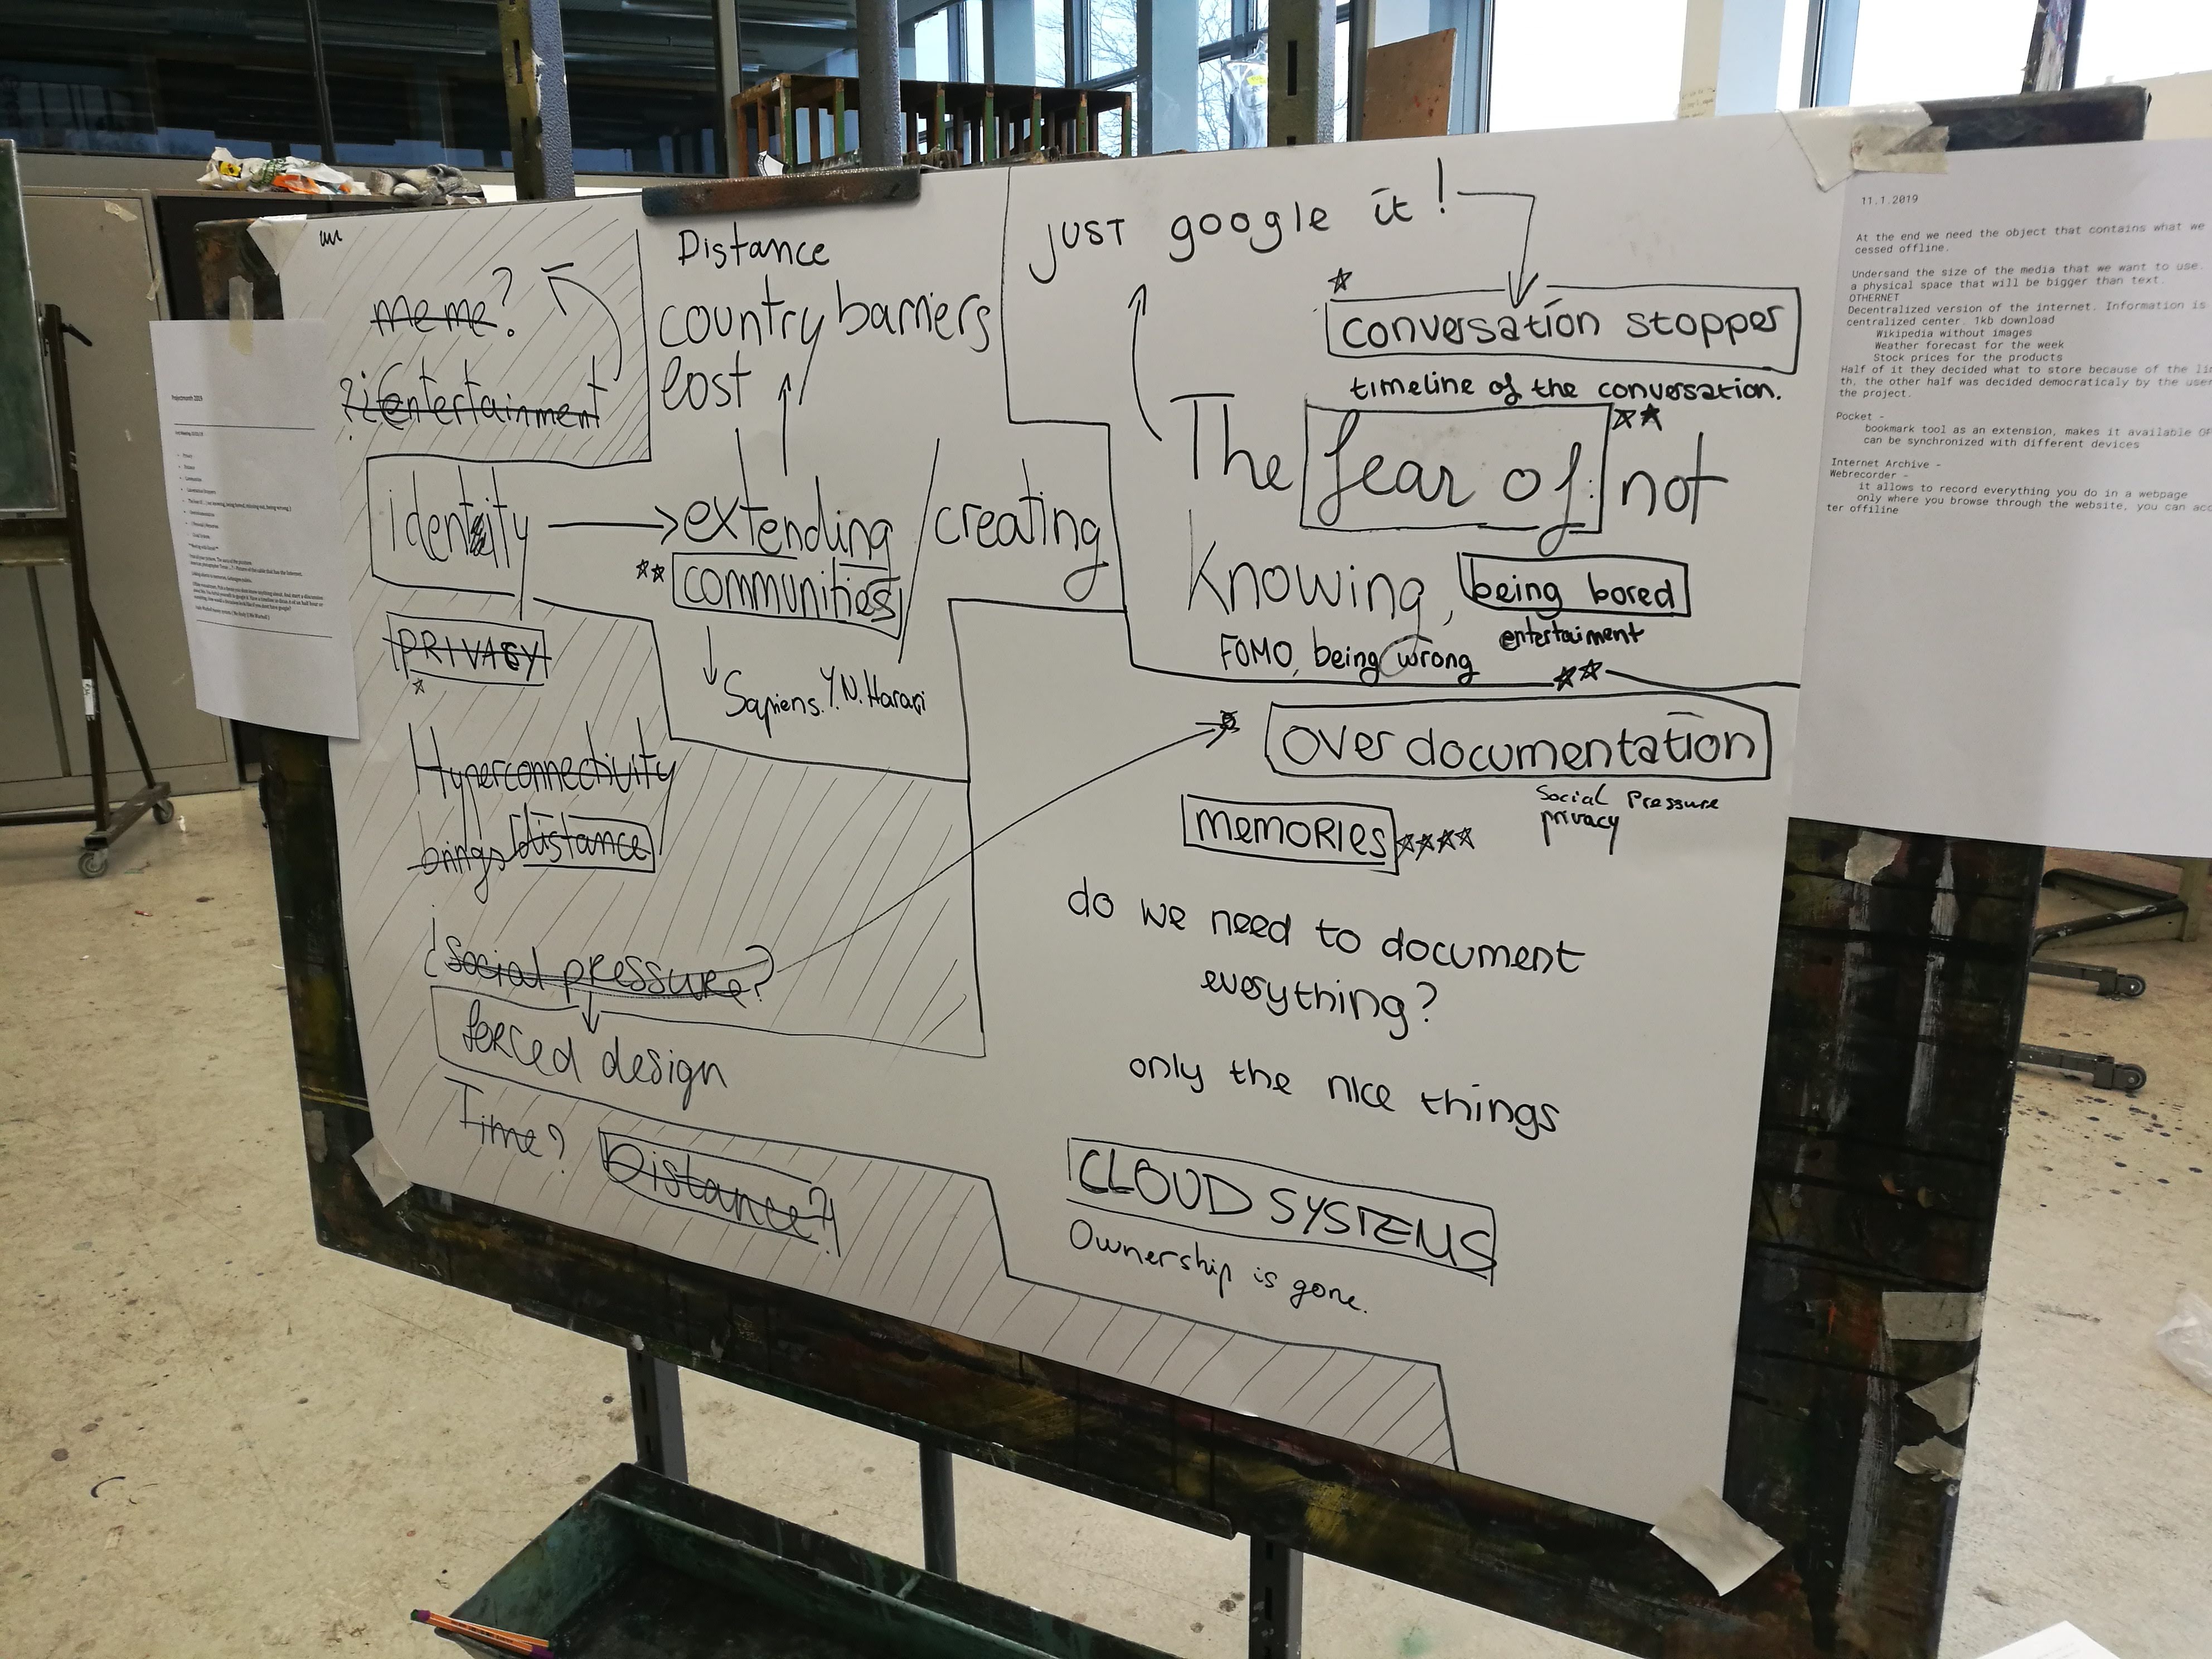 meme?
entertainment
Distance
country barriers
lost
identity
extending / creating
communities
Sapiens. Y. N. Harari
PRIVACY
Hyperconnectivity
brings distance
¿Social pressure?
forced design
Time? Distance?!
JUST google it!
conversation stopper
timeline of the conversation.
The fear of: not
Knowing, being bored
entertaiment
FOMO, being wrong
over documentation
Social Pressure
privacy
MEMORIES
do we need to document
everything?
only the nice things
CLOUD SYSTEMS
Ownership is gone.
Projectmonth 2019
11.1.2019
At the end we need the object that contains what we
cessed offline.
Undersand the size of the media that we want to use.
a physical space that will be bigger than text.
OTHERNET
Decentralized version of the internet. Information is
centralized center. 1kb download
Wikipedia without images
Weather forecast for the week
Stock prices for the products
Half of it they decided what to store because of the
th, the other half was decided democraticaly by the
the project.
Pocket -
bookmark tool as an extension, makes it available
can be synchronized with different devices
Internet Archive -
Webrecorder -
it allows to record everything you do in a webpage
only where you browse through the website, you can
ter offiline